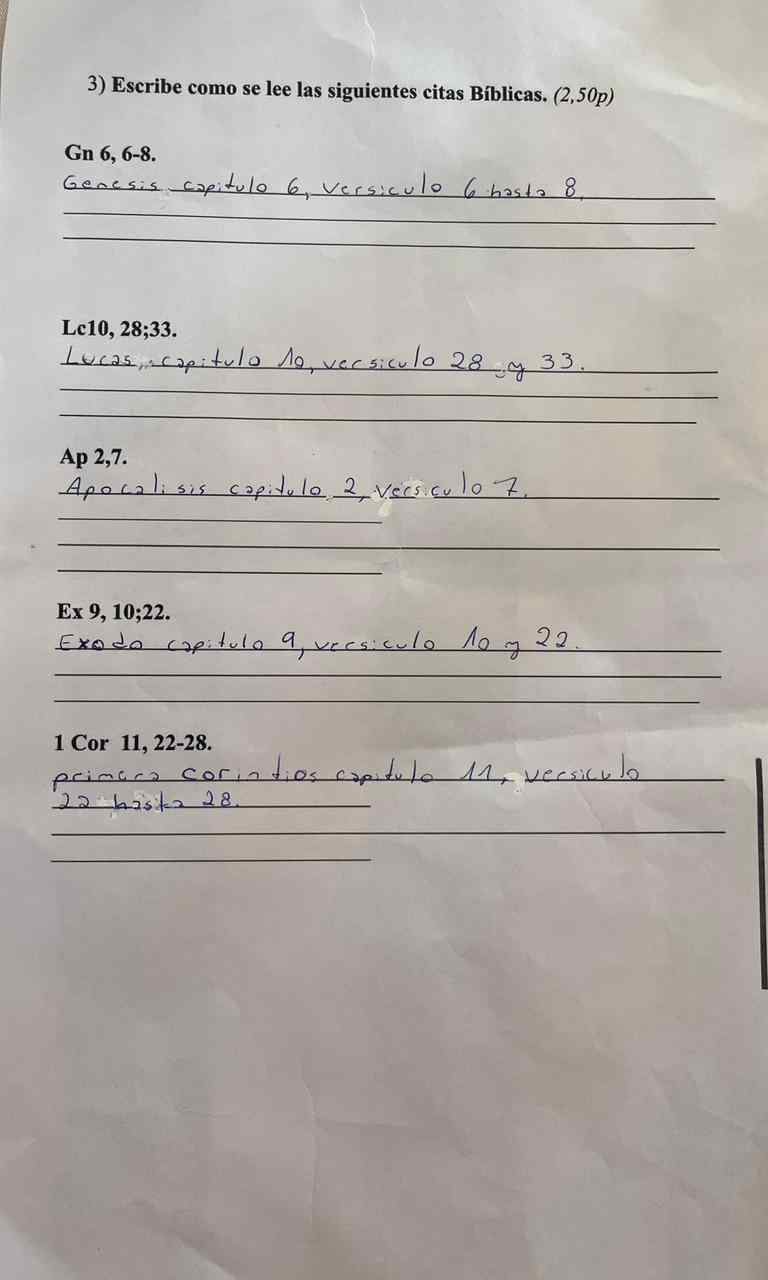 3) Escribe como se lee las siguientes citas Bíblicas. (2,50p)
Gn 6, 6-8.
Genesis capitulo 6, versiculo 6 hasta 8.
Lc10, 28;33.
Lucas, capitulo 10, versiculo 28 y 33.
Ap 2,7.
Apocalisis capitulo 2, versiculo 7.
Ex 9, 10;22.
Exodo capitulo 9, versiculo 10 y 22.
1 Cor 11, 22-28.
primera corintios capitulo 11, versiculo
22 hasta 28.